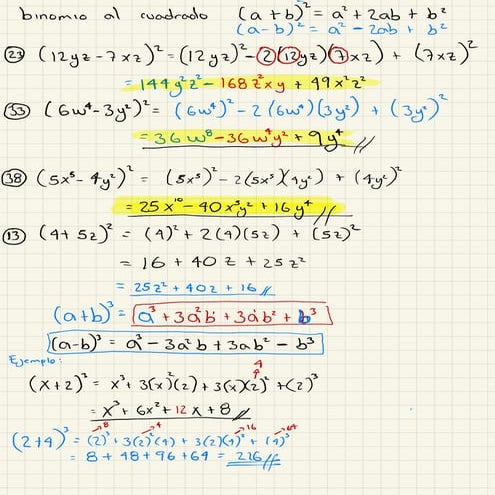 binomio al cuadrado (a+b)² = a² + 2ab + b²
(a-b)² = a² - 2ab + b²
(23) (12yz - 7xz)² = (12yz)² - 2(12yz)(7xz) + (7xz)²
= 144y²z² - 168z²xy + 49x²z²
(33) (6w⁴ - 3y²)² = (6w⁴)² - 2(6w⁴)(3y²) + (3y²)²
= 36w⁸ - 36w⁴y² + 9y⁴ //
(38) (5x⁵ - 4y²)² = (5x⁵)² - 2(5x⁵)(4y²) + (4y²)²
= 25x¹⁰ - 40x⁵y² + 16y⁴ //
(13) (4+5z)² = (4)² + 2(4)(5z) + (5z)²
= 16 + 40z + 25z²
= 25z² + 40z + 16 //
(a+b)³ = a³ + 3a²b + 3ab² + b³
(a-b)³ = a³ - 3a²b + 3ab² - b³
Ejemplo:
4
(x+2)³ = x³ + 3(x)²(2) + 3(x)(2)² + (2)³
= x³ + 6x² + 12x + 8 //
8 4 16 64
(2+4)³ = (2)³ + 3(2)²(4) + 3(2)(4)² + (4)³
= 8 + 48 + 96 + 64 = 216 //